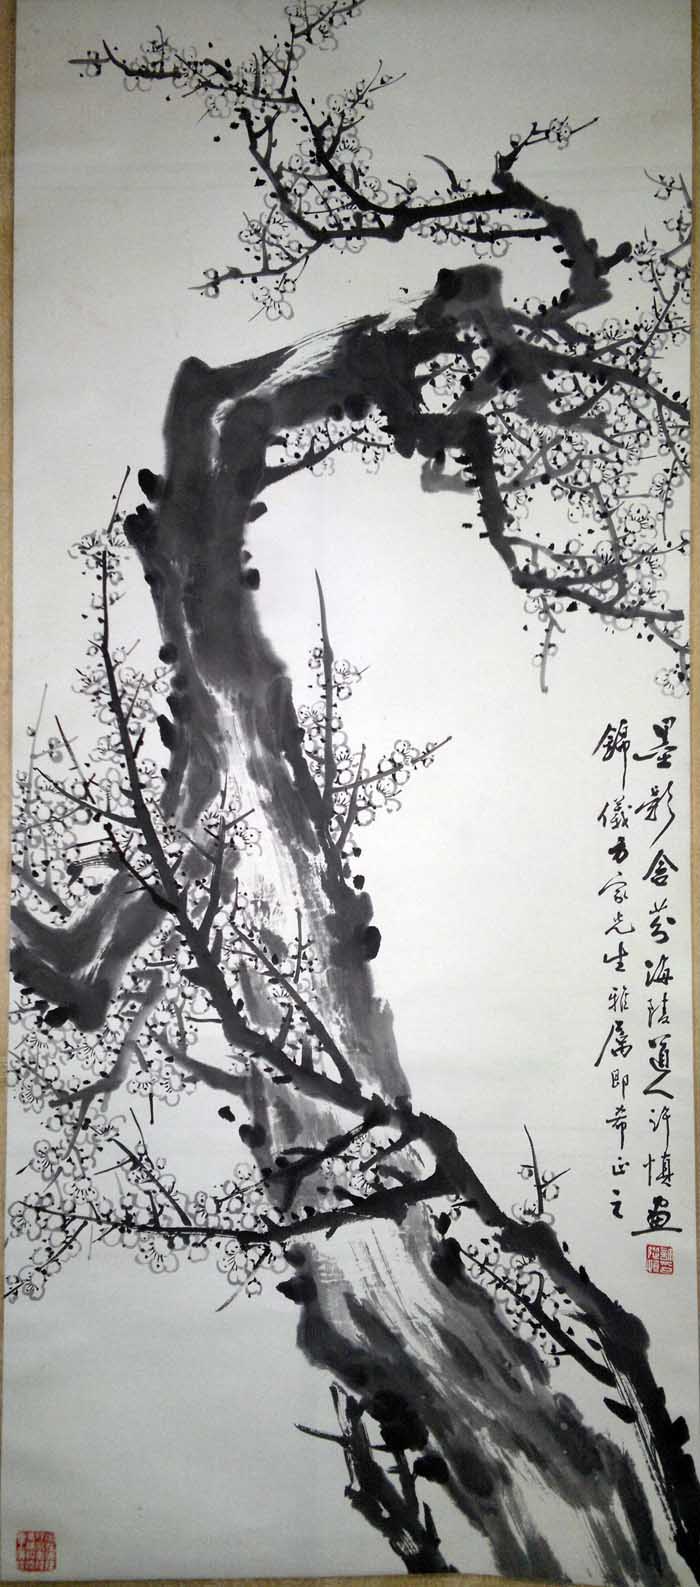 墨影含芬海陵道人许慎画
錦儀方家先生雅属即希正之